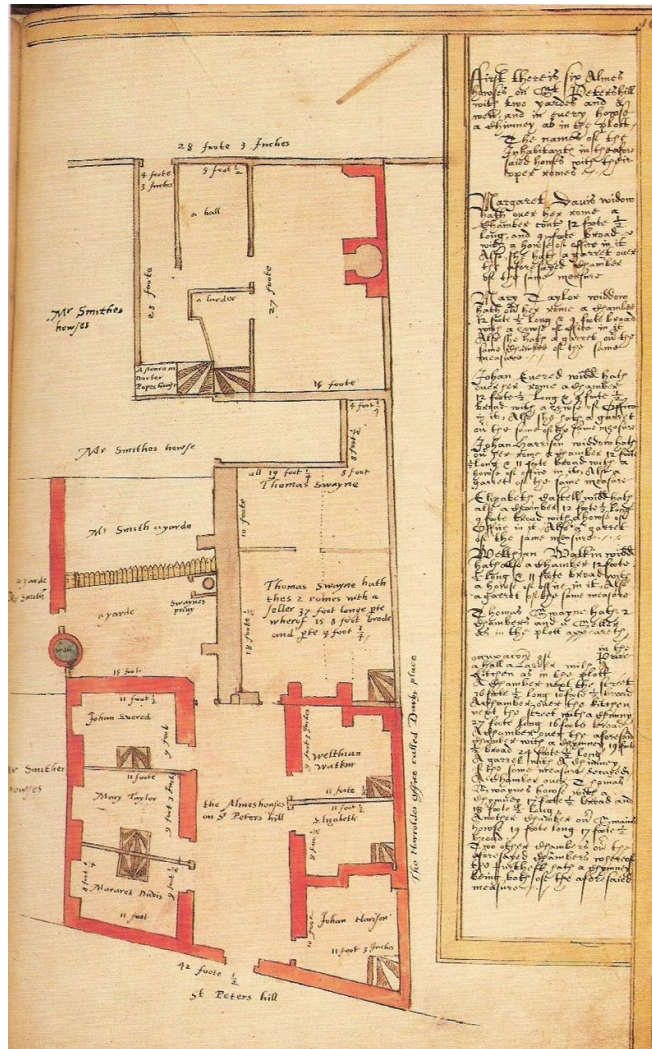 28 foote 3 Inches
4 foote
3 Inches
9 foot ½
a hall
28 foote
27 foote
a larder
Mr Smithes
howses
16 foote
Mr Smithes howse
4 foot
8 foot
all 19 foot ½
8 foot
Thomas Swayne
Mr Smith ayarde
10 foote
a yarde
Swaynes
privy
ayarde
well
Thomas Swayne hath
thes 2 romes with a
seller 37 foot longe
wherof is 8 foot brode
and
18 foote ½
15 foot
11 foot ½
Johan Evered
9 foot
11 foote
Mary Taylor
9 foot 3 Inches
Mr Smithes
howses
Mararet Davis
11 foot
the Almeshouses
on St Peters hill
9 foot 3 Inches
Welthian
Watkin
11 foot ½
11 foot ½
Elizabeth
8 foot ½
Johan Harison
10 foot
11 foot 3 Inches
The Harroldes office called Darby place
42 foote ½
St Peters hill
First there is six Almes
howses on St Petershill
with two yardes and a
well, and in every howse
a Chimney as in the plott
The names of the
Inhabitants in the afore
saied howses with their
upper romes
Margaret Davis widdow
hath over her rome a
Chamber cont 12 foote ½
long, and 9 foote broad
with a howse of office in it
Also she hath a garret over
the aforesayed Chamber
of the same measure
Mary Taylor widdow
hath over her rome a Chamber
12 foote ½ long & 9 foote broad
with a howse of office in it
Also she hath a garret on the
same Chamber of the same
measure
Johan Evered widd hath
over her rome a chamber
12 foote ½ long & 9 foote
broad with a howse of Office
in it, Also she hath a garret
on the same of the same measure
Johan Harrison widdow hath
on her rome a chamber 12 foote
long & 11 foote broad with a
howse of office in it, Also a
garret of the same measure
Elizabeth widd hath
also a Chamber 12 foote ½ long
9 foote broad with a howse of
Office in it, Also a garret
of the same measure
Welthian Watkin widd
hath also a Chamber 12 foote
½ long & 11 foote broad with
a howse of office in it, Also
a garret of the same measure
Thomas Swayne hath 2
Chambers and a Seller
as in the plott appeareth
a hall a Larder with
kitchen as in the plott
A Chamber next the street
16 foote ½ long 10 foote ½ broad
A chamber over the kitchen
next the street with a chimney
27 foote long 16 foote broad
A chamber over the aforesaid
chamber with a chimney 19 foote
½ broad 24 foote ½ long
A garret with a Chimney
of the same measure
A chamber over Thomas
Swaynes howse with a
Chimney 17 foote ½ broad and
18 foote ½ long
Another chamber on
howse 19 foote long 17 foote ½
broad
Two other chambers on the
aforesayed chambers whereof
the hath a chimney
being both of the aforesaied
measure